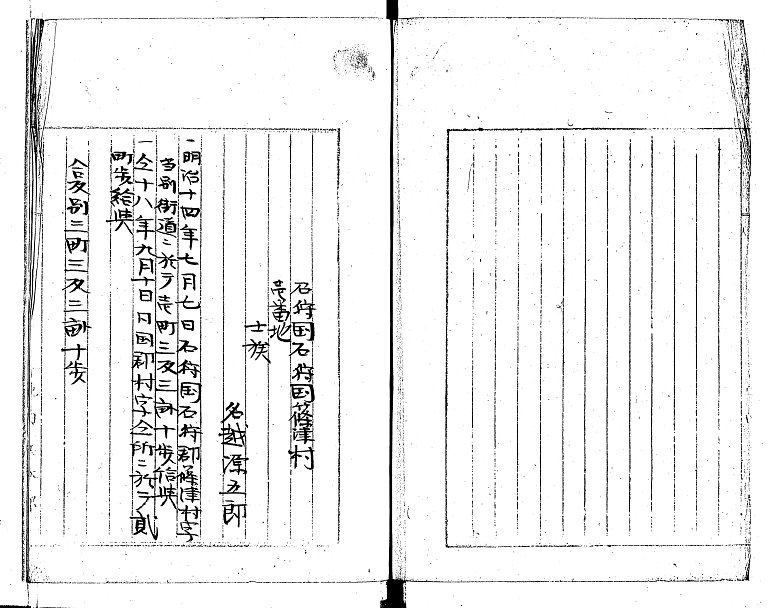 石狩国石狩国篠津村
壱番地
士族
名越源五郎
一明治十四年七月七日石狩国石狩郡篠津村字
当別街道ニ於テ壱町三反三畝十歩給與
一仝十八年九月十日同国郡村字仝所ニ於テ貳
町歩給與
合反別三町三反三畝十歩